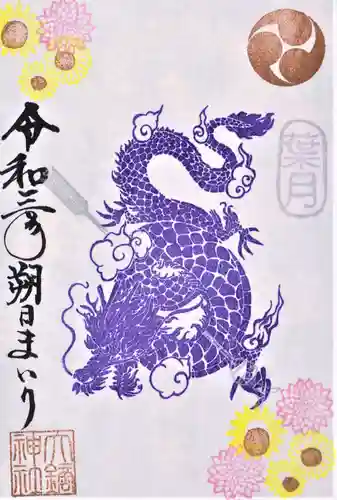 葉月
令和三年朔日まいり
大鏑
神社